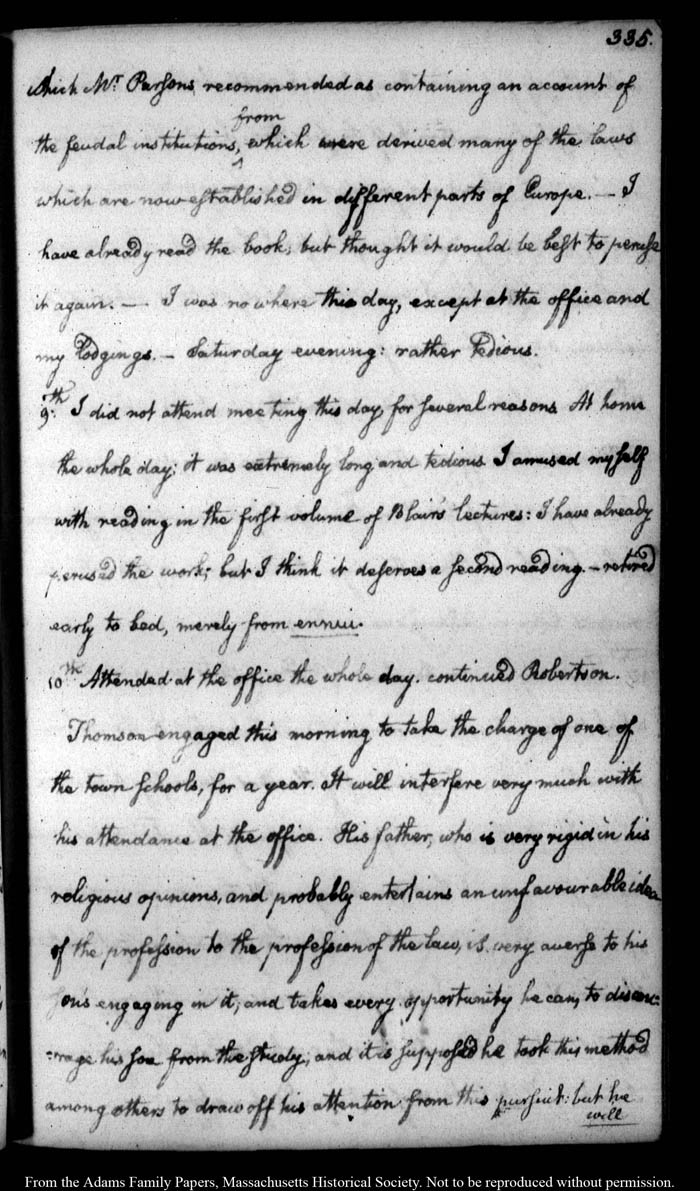 335.
which Mr. Parsons recommended as containing an account of
from
the feudal institutions, ^ which were derived many of the laws
which are now established in different parts of Europe. — I
have already read the book; but thought it would be best to peruse
it again. — I was no where this day, except at the office and
my lodgings. — Saturday evening: rather tedious.
9th. I did not attend meeting this day, for several reasons. At home
the whole day; it was extremely long and tedious. I amused myself
with reading in the first volume of Blair's lectures: I have already
perused the work; but I think it deserves a second reading. — retired
early to bed, merely from ennui.
10th. Attended at the office the whole day. continued Robertson.
Thomson engaged this morning to take the charge of one of
the town schools, for a year. It will interfere very much with
his attendance at the office. His father, who is very rigid in his
religious opinions, and probably entertains an unfavourable idea
of the profession to the profession of the law, is very averse to his
son's engaging in it, and takes every opportunity he can, to discou-
-rage his son from the study; and it is supposed he took this method
among others to draw off his attention from this pursuit: but he
will
From the Adams Family Papers, Massachusetts Historical Society. Not to be reproduced without permission.